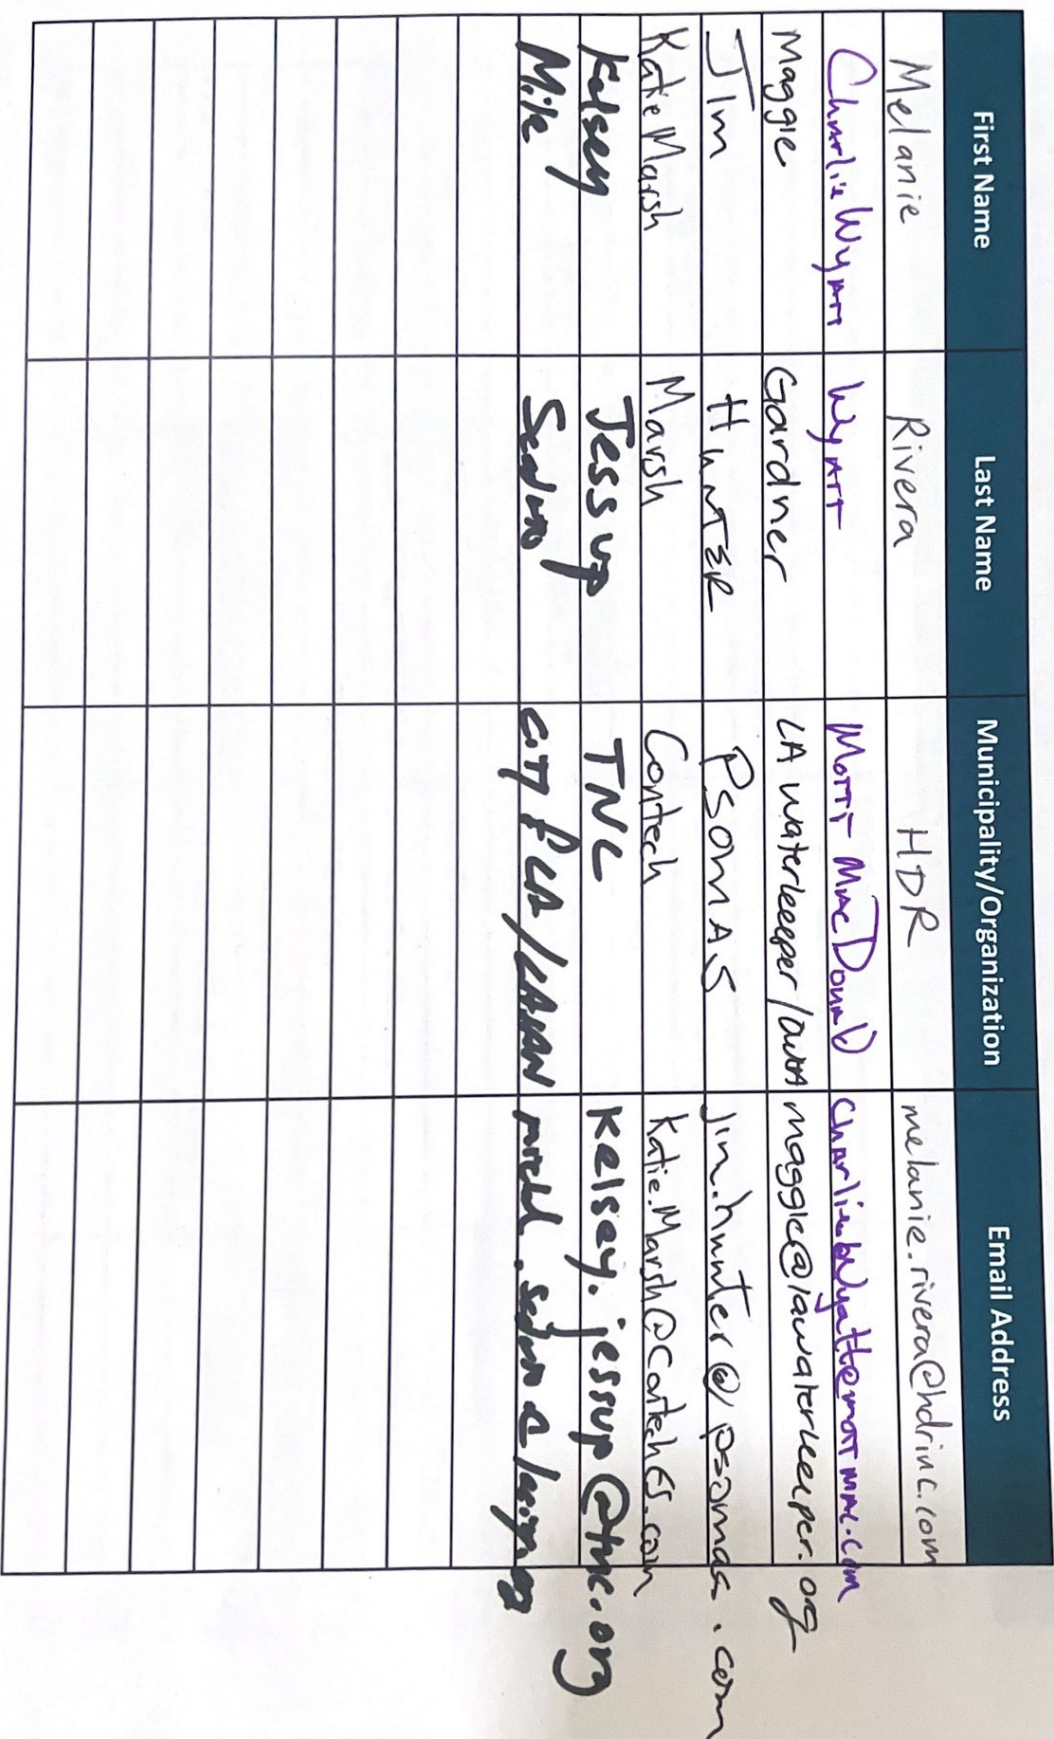 First Name Last Name Municipality/Organization Email Address
Melanie Rivera HDR melanie.rivera@hdrinc.com
Charlie Wyatt Wyatt Mott MacDonald
Maggie Gardner LA Waterkeeper/ maggie@lawaterkeeper.org
Jim HunTER PSOMAS jim.hunter@psomas.com
Katie Marsh Marsh Contech Katie.Marsh@ContechES.com
Kelsey Jessup TNC Kelsey.jessup@tnc.org
Mike